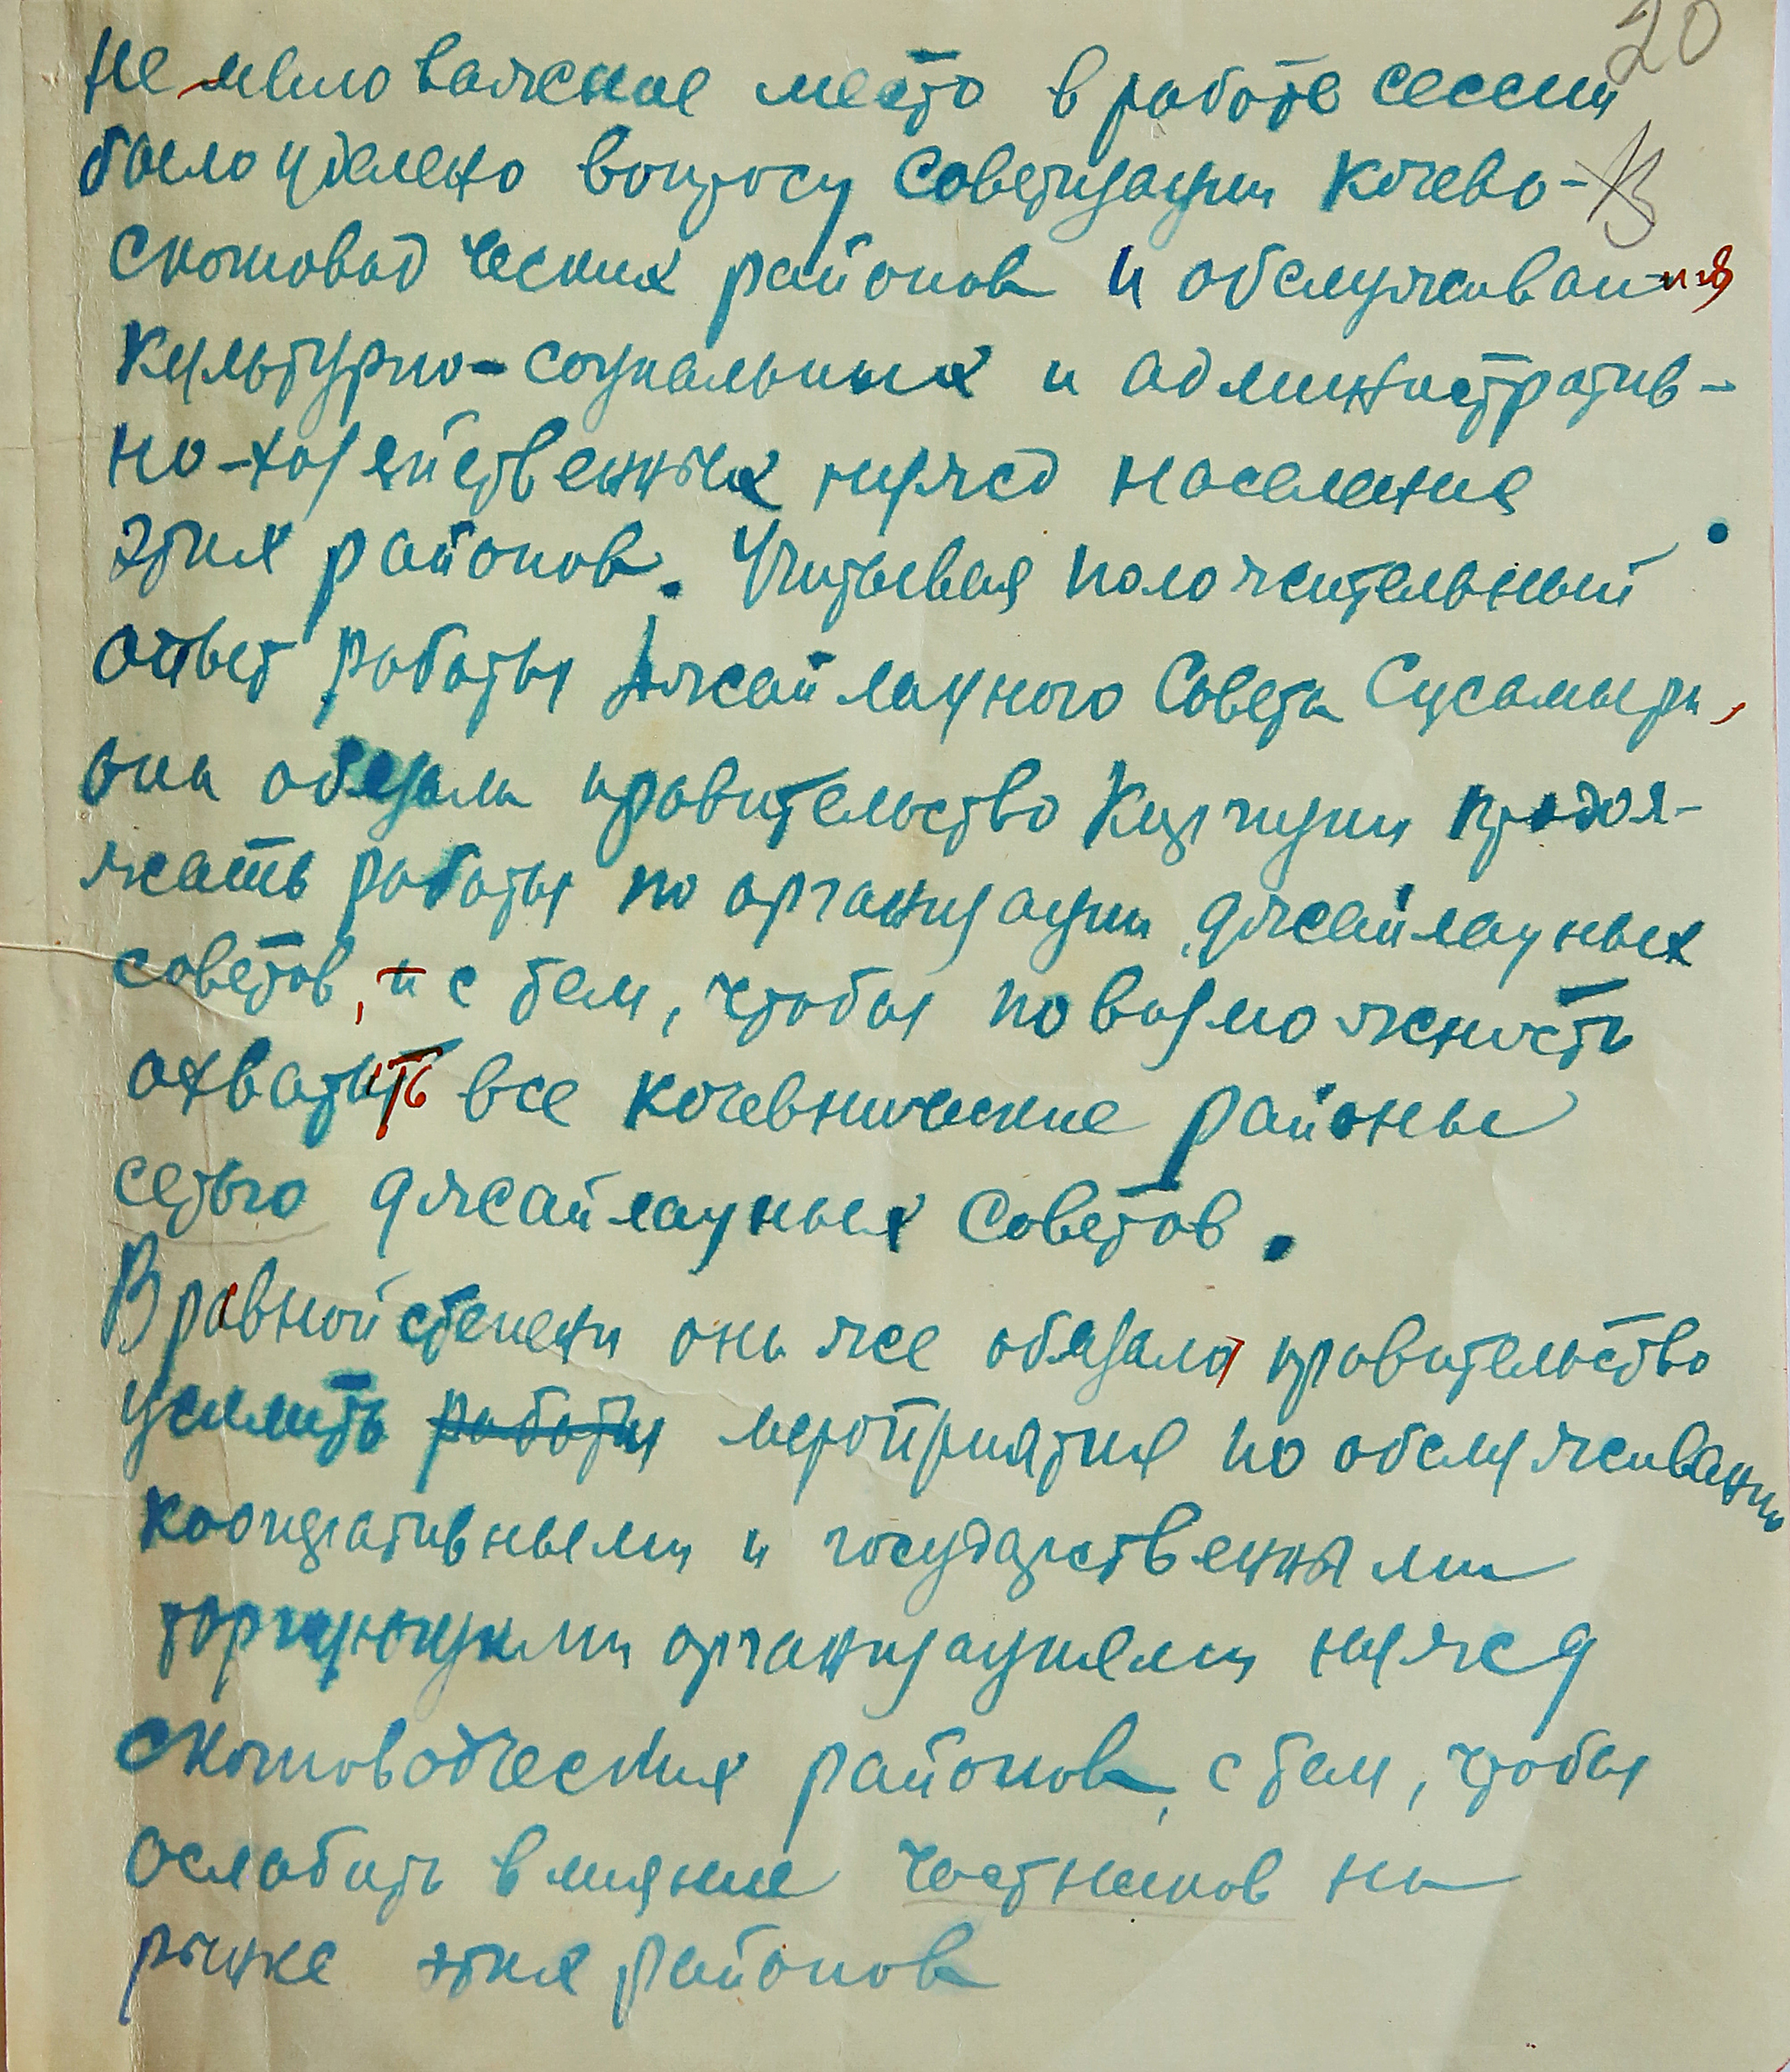 20
Не маловажное место в работе сессии
было уделено вопросу советизации кочево-
скотоводческих районов и обслуживания
культурно-социальных и административ-
но-хозяйственных нужд населения
этих районов. Учитывая положительный
ответ работы джайлаучного Совета Сусамыри,
она обязала правительство Киргизии продол-
жать работы по организации джайлаучных
советов, и с тем, чтобы по возможность
охватить все кочевнические районы
сетью джайлаучных Советов.
В равной степени она же обязала правительство
усилить работы мероприятия по обслуживанию
кооперативными и государственными
торгующими организациями нужд
скотоводческих районов, с тем, чтобы
ослабить влияние частников на
рынке этих районов